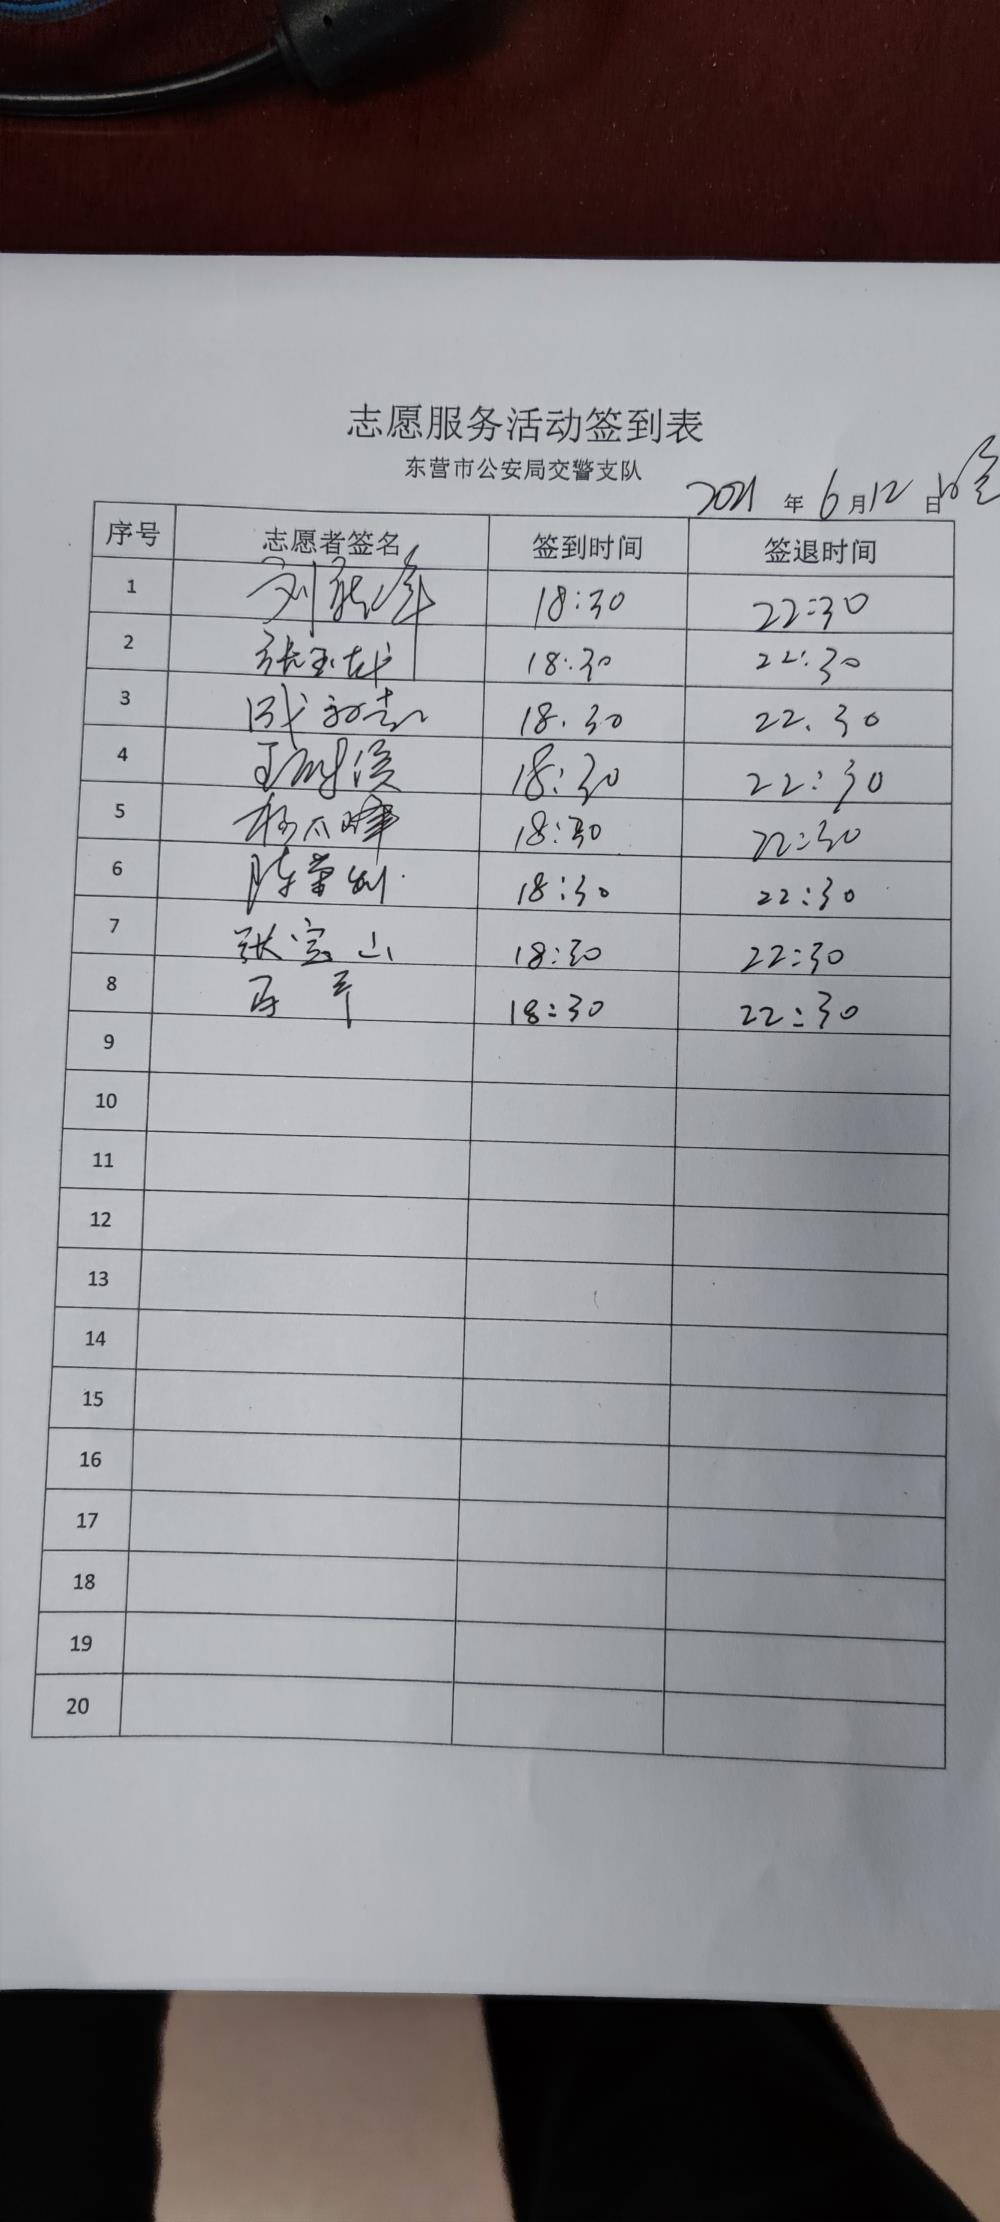 志愿服务活动签到表
东营市公安局交警支队
2021 年 6 月 12 日晚
序号 志愿者签名 签到时间 签退时间
1 刘 18:30 22:30
2 张玉 18:30 22:30
3 18:30 22:30
4 王 18:30 22:30
5 杨 峰 18:30 22:30
6 陈 18:30 22:30
7 张宝山 18:30 22:30
8 18:30 22:30
9
10
11
12
13
14
15
16
17
18
19
20